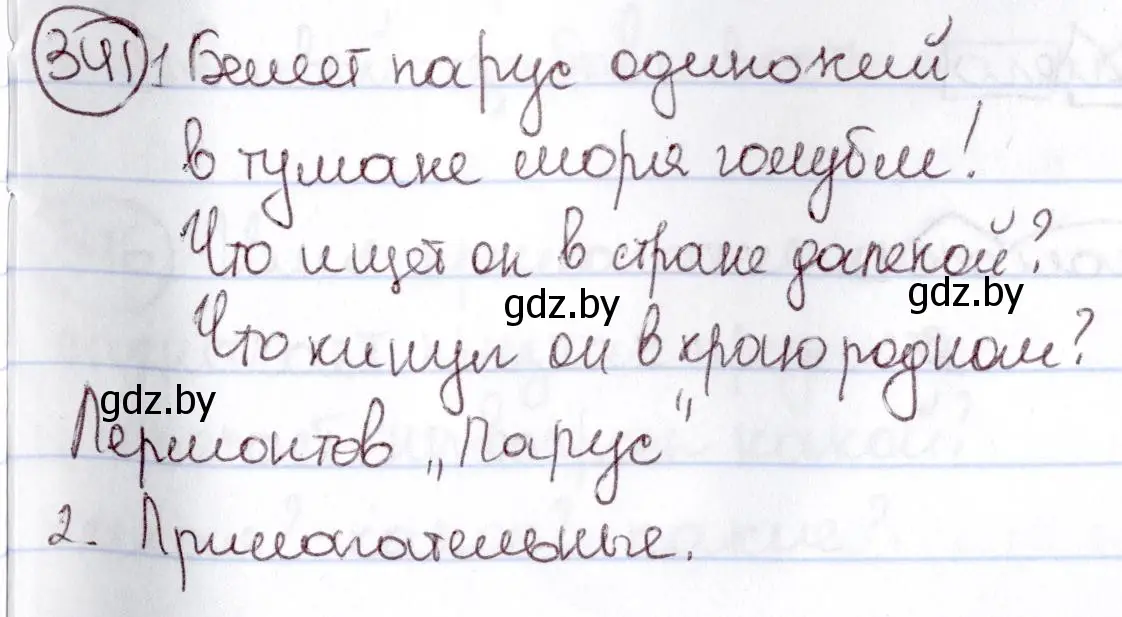 341 1 Белеет парус одинокий
в тумане моря голубом!
Что ищет он в стране далекой?
gdz.by gdz.by
Что кинул он в краю родном?
gdz.by
Лермонтов „Парус“
2. Прилагательные.